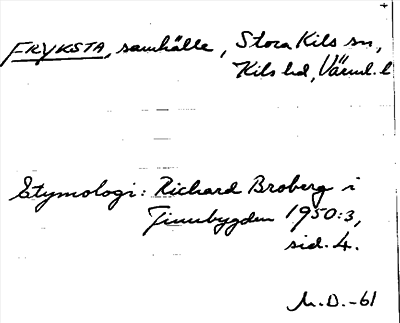 FRYKSTA, samhälle, Stora Kils sn,
Kils hd, Värml. l
Etymologi: Richard Broberg i
Finnbygden 1950:3,
sid. 4.
M.D.-61